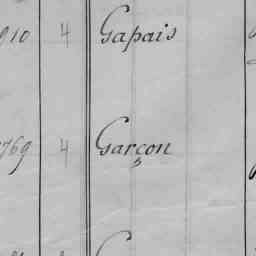 910 4 Gapais
769 4 Garçon